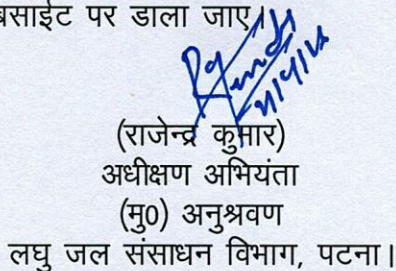 बसाईट पर डाला जाए।
(राजेन्द्र कुमार)
अधीक्षण अभियंता
(मु0) अनुश्रवण
लघु जल संसाधन विभाग, पटना।